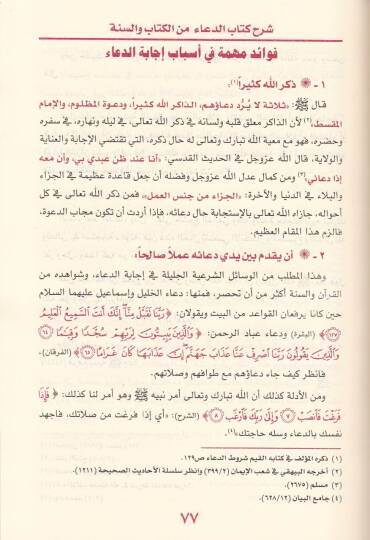 شرح كتاب الدعاء من الكتاب والسنة
فوائد مهمة في أسباب إجابة الدعاء
١ - ذكر الله كثيراً(١):
قال ﷺ: «ثلاثة لا يُرَد دعاؤهم، الذاكر الله كثيراً، ودعوة المظلوم، والإمام
المقسط»(٢) لأن الذاكر معلق قلبه ولسانه في ذكر الله تعالى، في ليله ونهاره، في سفره
وحضره، فهو مع معية الله تبارك وتعالى له حال ذكره، التي تقتضي الإجابة والعناية
والولاية، قال الله عزوجل في الحديث القدسي: «أنا عند ظن عبدي بي، وأن معه
إذا دعاني»(٣) ومن كمال عدل الله عزوجل وفضله أن جعل قاعدة عظيمة في الجزاء
والبلاء في الدنيا والآخرة: «الجزاء من جنس العمل»، فمن ذكر الله تعالى في كل
أحواله، جازاه الله تعالى بالإستجابة حال دعائه، فإذا أردت أن تكون مجاب الدعوة،
فالزم هذا المقام العظيم.
٢ - أن يقدم بين يدي دعائه عملاً صالحاً:
وهذا المطلب من الوسائل الشرعية الجليلة في إجابة الدعاء، وشواهده من
القرآن والسنة أكثر من أن تحصر، فمنها: دعاء الخليل وإسماعيل عليهما السلام
حين كانا يرفعان القواعد من البيت ويقولان: ﴿رَبَّنَا تَقَبَّلْ مِنَّا إِنَّكَ أَنْتَ السَّمِيعُ الْعَلِيمُ
﴿١٢٧﴾ (البقرة)، ودعاء عباد الرحمن: ﴿وَالَّذِينَ يَبِيتُونَ لِرَبِّهِمْ سُجَّدًا وَقِيَامًا ﴿٦٤﴾
وَالَّذِينَ يَقُولُونَ رَبَّنَا اصْرِفْ عَنَّا عَذَابَ جَهَنَّمَ إِنَّ عَذَابَهَا كَانَ غَرَامًا ﴿٦٥﴾ (الفرقان)،
فانظر كيف جاء دعاؤهم مع طوافهم وصلاتهم.
ومن الأدلة كذلك أن الله تبارك وتعالى أمر نبيه ﷺ وهو أمر لنا كذلك: ﴿فَإِذَا
فَرَغْتَ فَانْصَبْ ﴿٧﴾ وَإِلَى رَبِّكَ فَارْغَبْ ﴿٨﴾ (الشرح): «أي إذا فرغت من صلاتك، فاجهد
نفسك بالدعاء وسله حاجتك»(٤).
(١) ذكره المؤلف في كتابه القيم شروط الدعاء ص١٢٩.
(٢) أخرجه البيهقي في شعب الإيمان (٣٩٩/٢) وانظر سلسلة الأحاديث الصحيحة (١٢١١).
(٣) مسلم (٢٦٧٥).
(٤) جامع البيان (٦٢٨/١٢).
٧٧